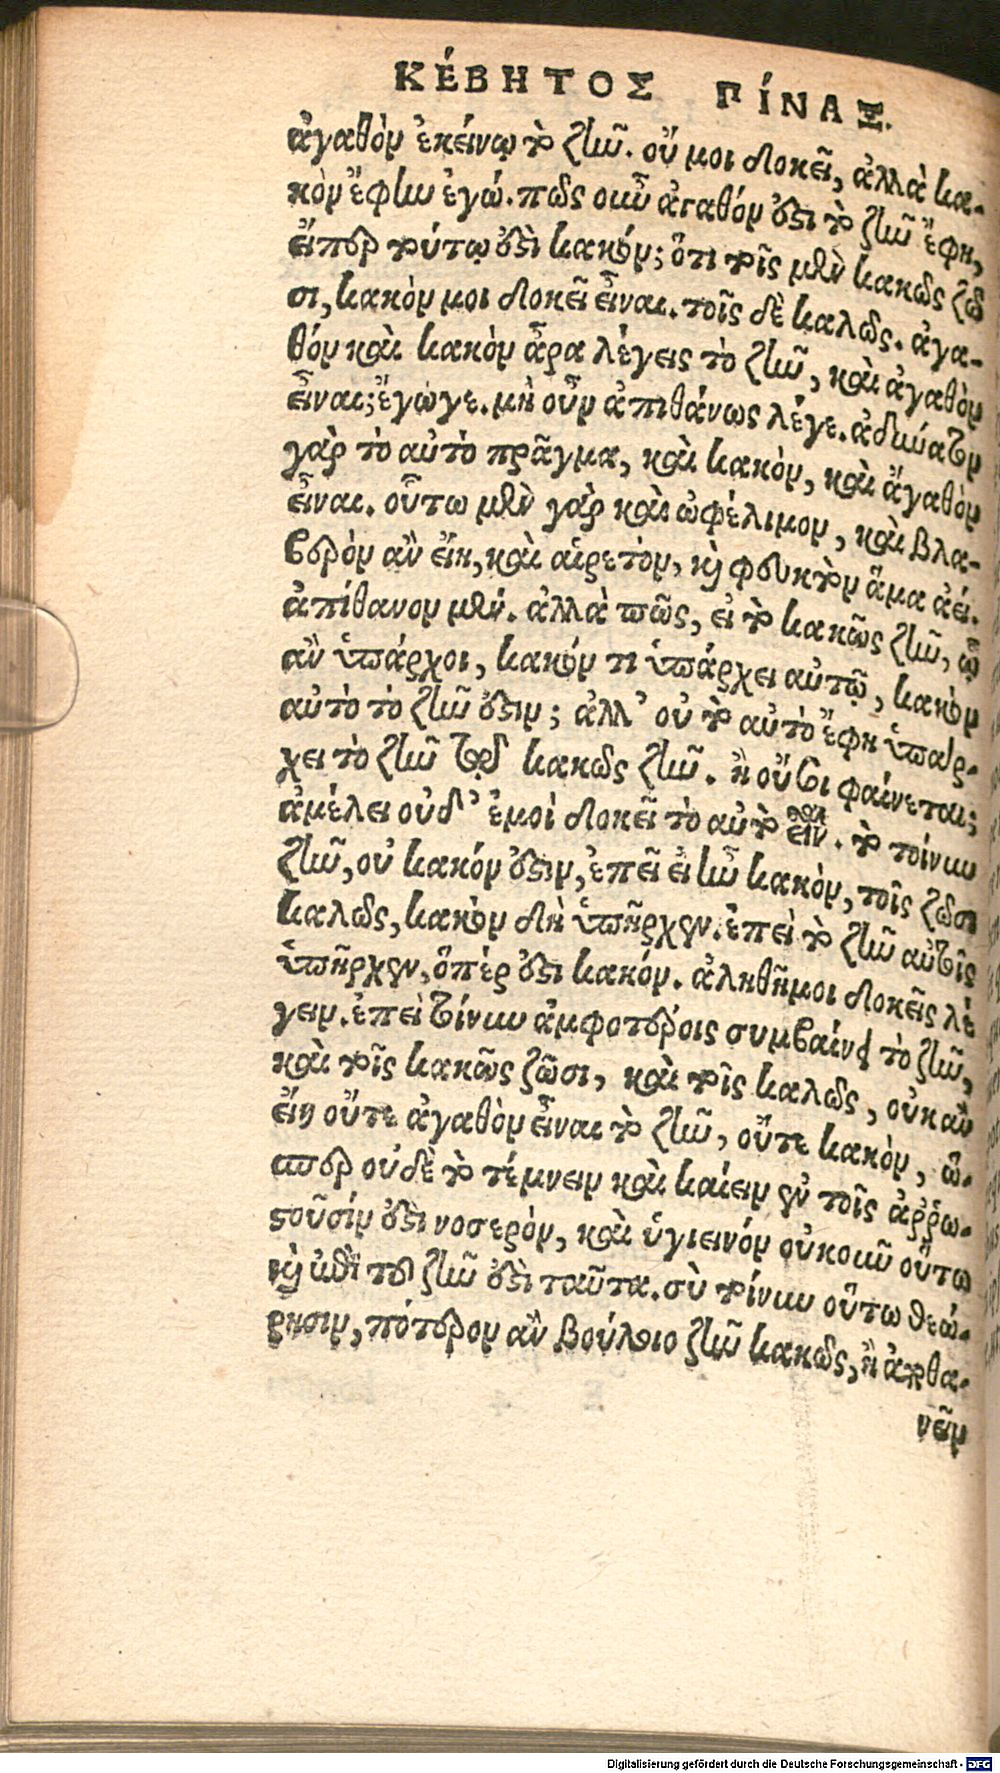 ΚΈΒΗΤΟΣ ΠΊΝΑΞ.
ἀγαθὸν ἐκείνῳ τὸ ζῆν. οὔ μοι δοκεῖ, ἀλλὰ κα-
κὸν ἔφην ἐγώ. πῶς οὖν ἀγαθόν ἐστι τὸ ζῆν ἔφη,
εἴπερ τούτῳ ἐστὶ κακόν; ὅτι τοῖς μὲν κακῶς ζῶ
σι, κακόν μοι δοκεῖ εἶναι. τοῖς δὲ καλῶς. ἀγα-
θόν καὶ κακὸν ἆρα λέγεις τὸ ζῆν, καὶ ἀγαθὸν
εἶναι; ἔγωγε. μὴ οὖν ἀπιθάνως λέγε. ἀδύνατον
γὰρ τὸ αὐτὸ πρᾶγμα, καὶ κακὸν, καὶ ἄγαθὸν
εἶναι. οὕτω μὲν γὰρ καὶ ὠφέλιμον, καὶ βλα-
βερὸν ἂν εἴη, καὶ αἱρετὸν, καὶ φευκτὸν ἅμα ἀεί.
ἀπίθανον μέν. ἀλλὰ πῶς, εἰ τὸ κακῶς ζῆν, ᾧ
ἂν ὑπάρχοι, κακόν τι ὑπάρχει αὐτῷ, κακὸν
αὐτὸ τὸ ζῆν ἐστιν; ἀλλ’ οὐ τὸ αὐτὸ ἔφη ὑπάρ-
χει τὸ ζῆν τῷ κακῶς ζῆν. ἢ οὔ σοι φαίνεται;
ἀμέλει οὐδ’ ἐμοὶ δοκεῖ τὸ αὐτὸ εἶναι. τὸ τοίνυν
ζῆν, οὐ κακόν ἐστιν, ἐπεῖ εἰ ἦν κακὸν, τοῖς ζῶσι
καλῶς, κακὸν δὴ ὑπῆρχεν. ἐπεὶ τὸ ζῆν αὐτοῖς
ὑπῆρχεν, ὅπέρ ἐστι κακόν. ἀληθῆ μοι δοκεῖς λέ
γειν. ἐπεὶ τοίνυν ἀμφοτέροις συμβαίνει τὸ ζῆν,
καὶ τοῖς κακῶς ζῶσι, καὶ τοῖς καλῶς, οὐκ ἂν
εἴη οὔτε ἀγαθὸν εἶναι τὸ ζῆν, οὔτε κακὸν, ὥ-
σπερ οὐδὲ τὸ τέμνειν καὶ καίειν ἐν τοῖς ἀῤῥω-
στοῦσίν ἐστὶ νοσερὸν, καὶ ὑγιεινόν οὐκοῦν οὕτω
καὶ ἐπὶ τοῦ ζῆν ἐστὶ ταῦτα. σὺ τοίνυν οὕτω θεώ-
ρησιν, πότερον ἂν βούλοιο ζῆν κακῶς, ἢ ἀποθα-
νεῖν
Digitalisierung gefördert durch die Deutsche Forschungsgemeinschaft - DFG